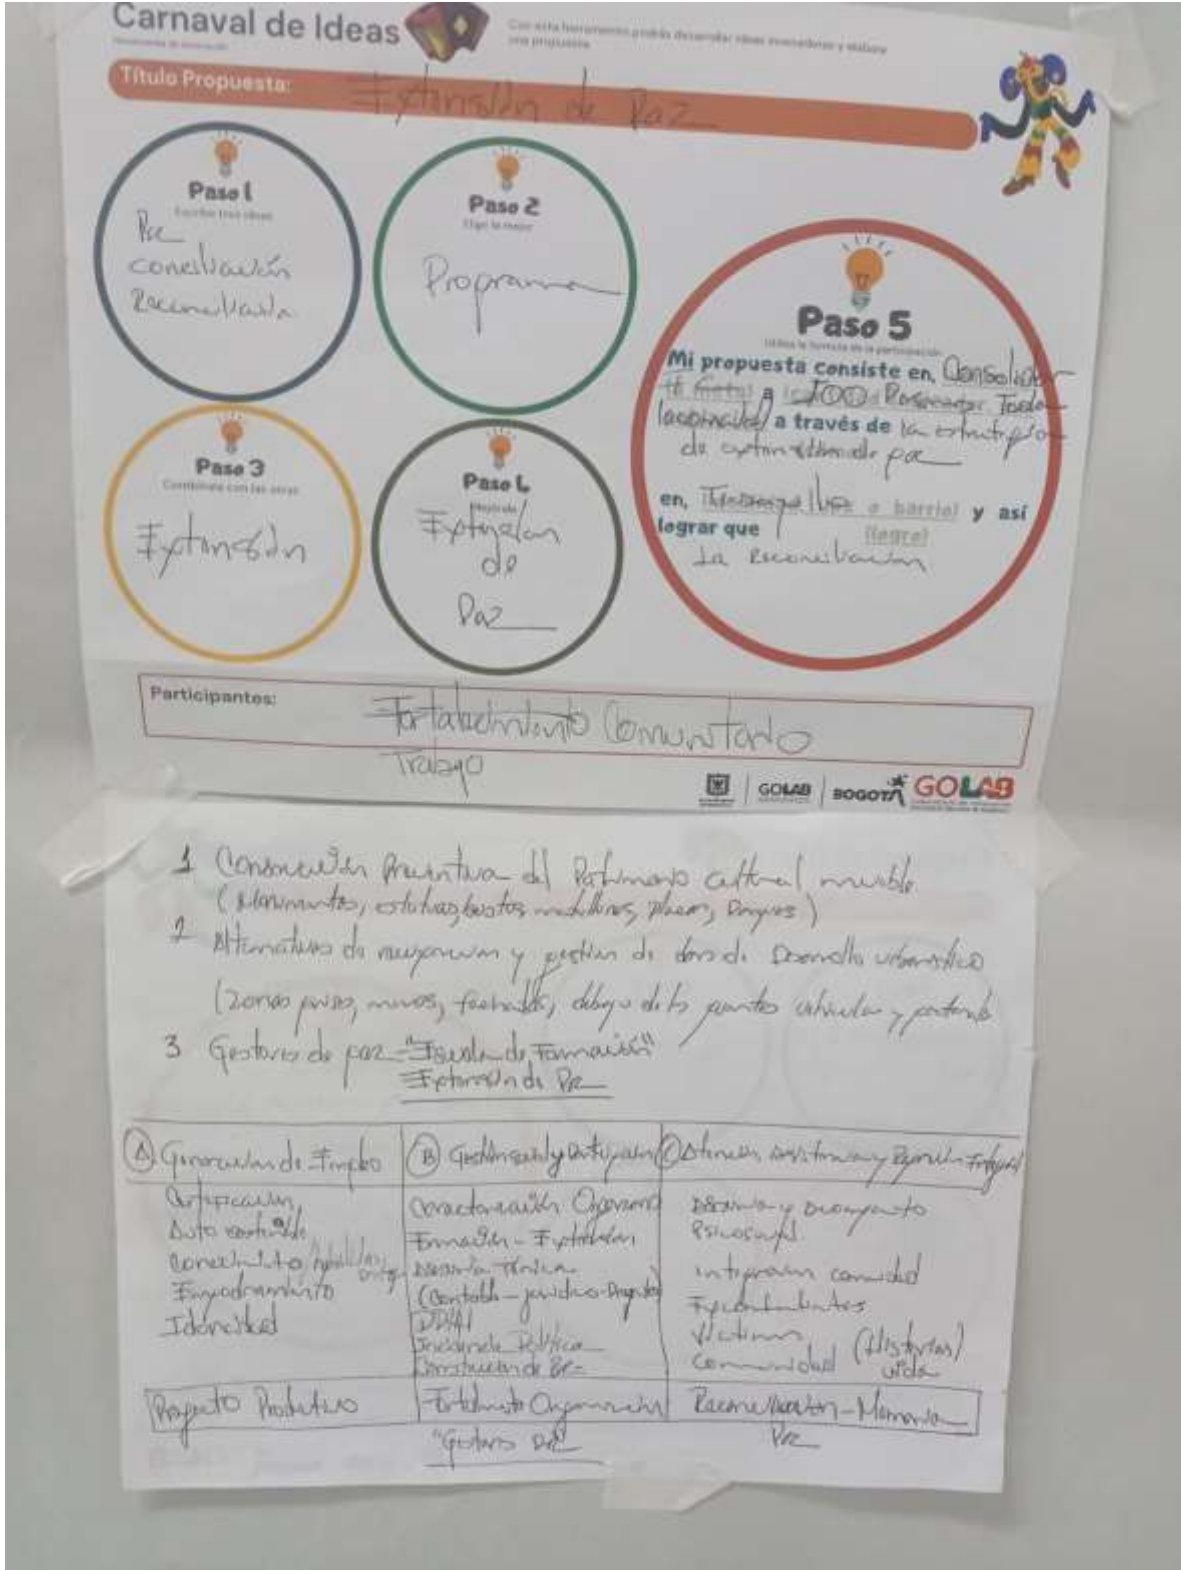 Carnaval de Ideas
Herramienta de innovación
Con esta herramienta podrás desarrollar ideas innovadoras y elaborar
una propuesta
Título Propuesta: Extensión de Paz
Paso 1
Escribe tres ideas
Paz
conciliación
Reconciliación
Paso 2
Elige la mejor
Programa
Paso 3
Combínala con las otras
Extensión
Paso 4
Extensión
de
Paz
Paso 5
Utiliza la formula de la participación
Mi propuesta consiste en, Consolidar
a 100 Personas Toda
a través de la estrategia
de extensión de paz
en, o barrio) y así
lograr que
La Reconciliación
Participantes:
Fortalecimiento Comunitario
Trabajo
GOLAB BOGOTÁ GOLAB
1 Conservación Preventiva del Patrimonio cultural mueble
(Monumentos, estatuas, bustos, placas,
2 Alternativas de y gestión de Desarrollo urbanístico
(zonas muros, fachadas, dibujo de y
3 Gestores de paz "Escuela de Formación"
Extensión de Paz
A Generación de Empleo
B Gestión y Participación
C Atención, asistencia y Reparación Integral
Certificación
Auto
Conocimiento
Empoderamiento
Idoneidad
Caracterización
Formación - Extensión
Asesoría Técnica
(Contable - jurídico -
Incidencia Política
Construcción de Paz
Asesoría y
Psicosocial
integración comunidad
Excombatientes
Víctimas
Comunidad (Historias)
vida
Proyecto Productivo
Fortalecimiento Organización
Reconciliación - Memoria
"Gestores Paz"
Paz